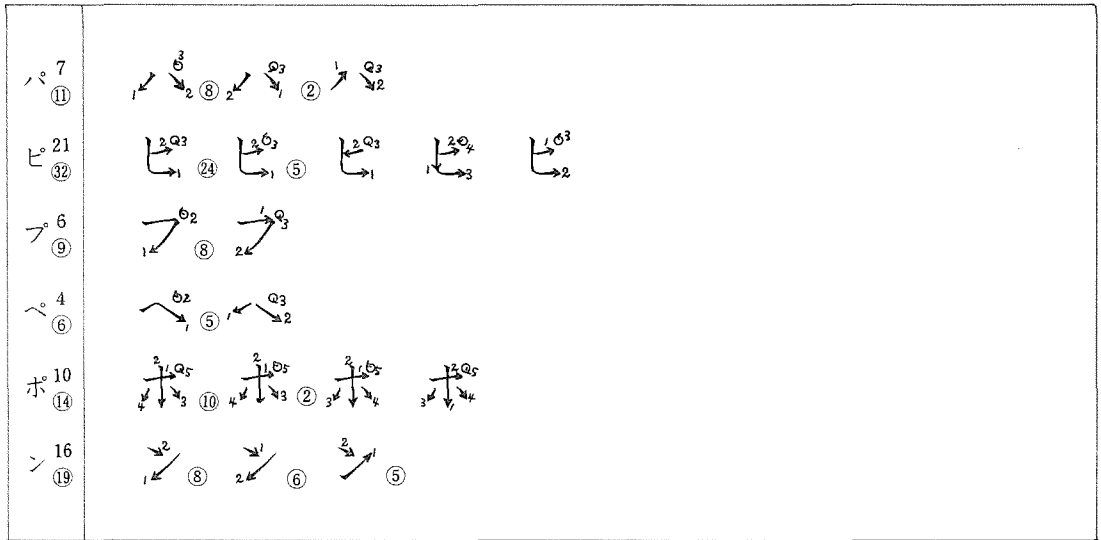 パ 7
⑪ 1 3 2 ⑧ 2 3 1 ② 1 3 2
ピ 21
㉜ 2 3 1 ㉔ 2 3 1 ⑤ 2 3 1 2 4 1 3 1 3 2
プ 6
⑨ 2 1 ⑧ 1 3 2
ペ 4
⑥ 2 1 ⑤ 1 3 2
ポ 10
⑭ 2 1 5 4 3 ⑩ 2 1 5 4 3 ② 2 1 5 3 4 2 5 3 1 4
ン 16
⑲ 2 1 ⑧ 1 2 ⑥ 2 1 ⑤